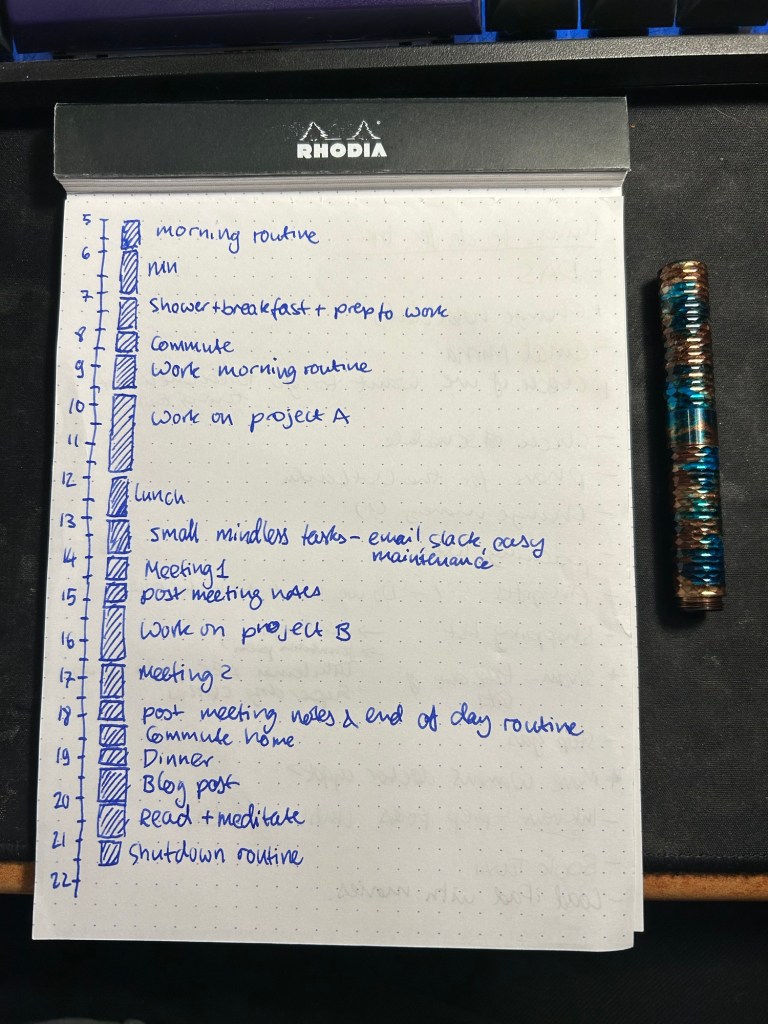 RHODIA
5
morning routine
6
run
7
Shower + breakfast + prep to work
8
Commute
9
Work morning routine
10
Work on project A
11
12
Lunch
13
Small mindless tasks - email, slack, easy
maintenance
14
Meeting 1
15
post meeting notes
16
Work on project B
17
Meeting 2
18
post meeting notes & end of day routine
Commute home
19
Dinner
Blog post
20
Read + meditate
21
Shutdown routine
22